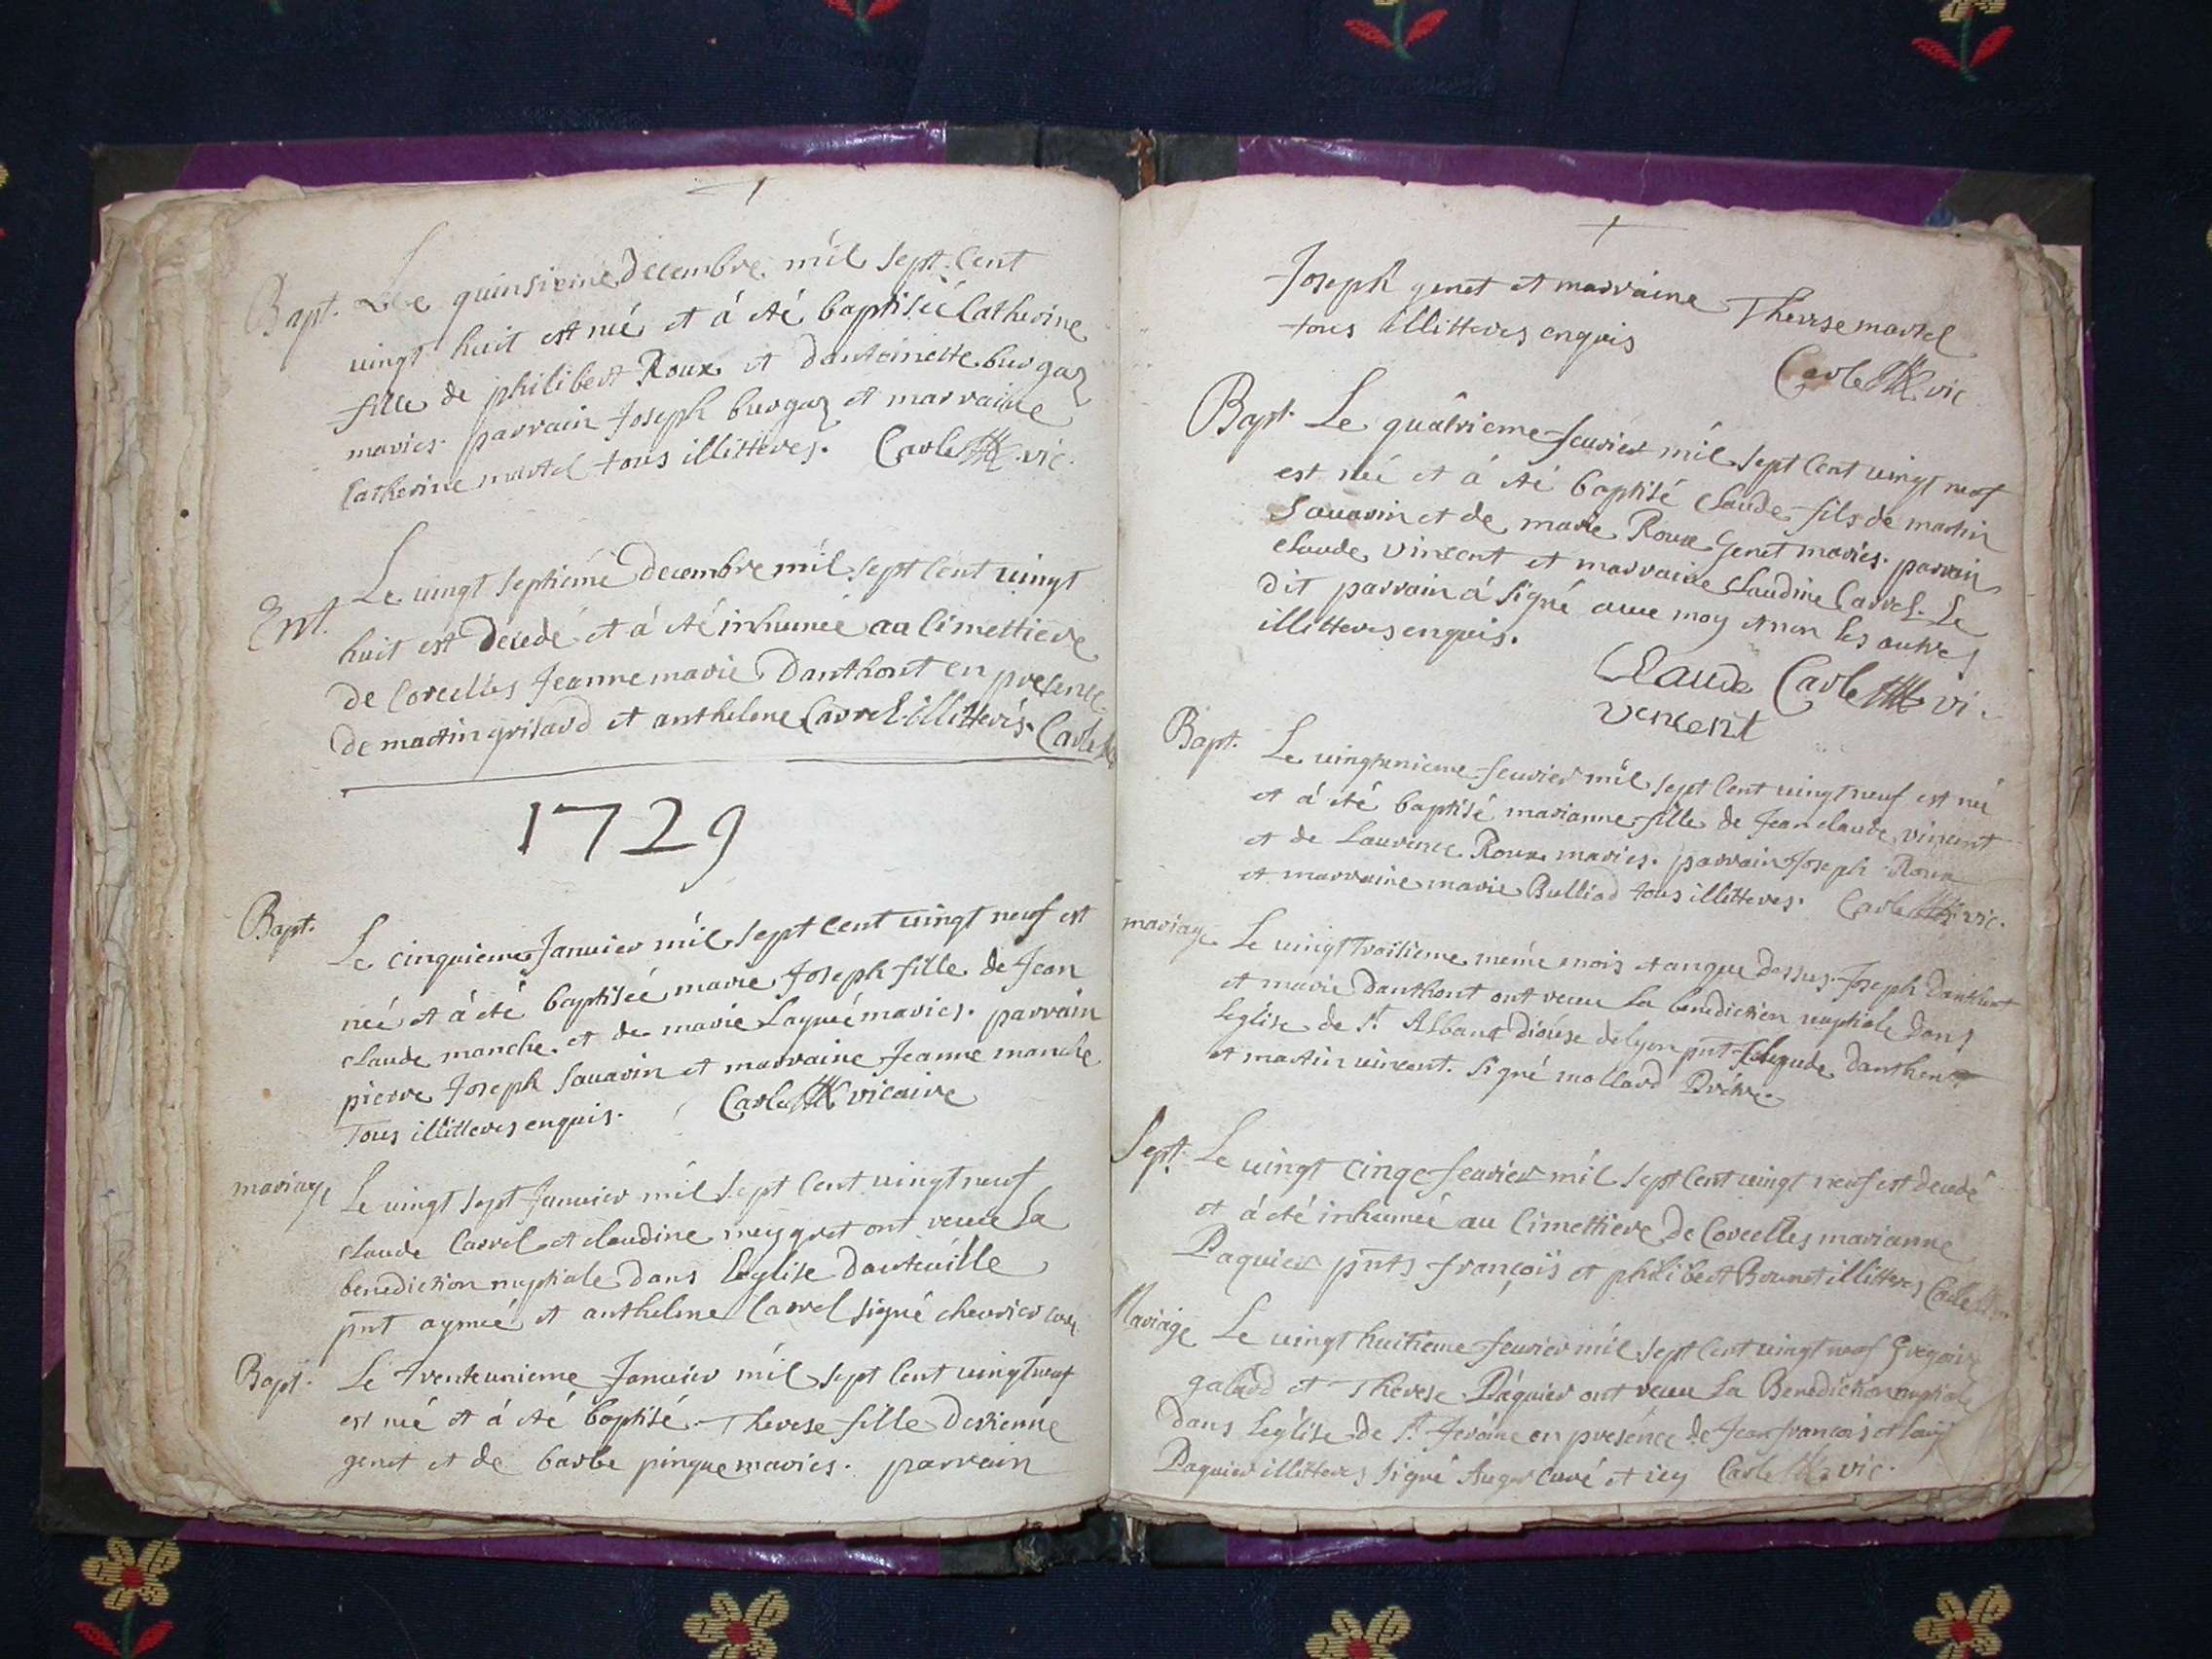 Bapt. Le quinsieme decembre mil sept cent
vingt huit est née et á eté baptisée Catherine
fille de philibert Roux et dantoinette burgaz
mariés. parrain Joseph burgaz et marraine
Catherine martel tous illitteres. Carle vic.
Ent. Le vingt septiéme decembre mil sept cent vingt
huit est decedé et á eté inhumée au Cimettiere
de Corcelles Jeanne marie Danthont en presence
de martin grisard et anthelme Carrel illitterés. Carle
1729
Bapt. Le cinquieme Janvier mil sept cent vingt neuf est
née et á eté baptisée marie Joseph fille de Jean
claude manche et de marie Laymé mariés. parrain
pierre Joseph Savarin et marraine Jeanne manche
Tous illitteres enquis. Carle vicaire
mariage Le vingt sept Janvier mil sept cent vingt neuf
claude Carrel et claudine meygret ont receu La
benediction nuptiale dans Leglise dauteuille
pnt aymé et anthelme Carrel signé chevrier curé
Bapt. Le trente unieme Janvier mil sept cent vingt neuf
est née et á eté baptisé Therese fille destienne
genet et de barbe pingue mariés. parrain
Joseph genet et marraine Therese martel
tous illitteres enquis
Carle vic
Bapt. Le quâtrieme feuvrier mil sept cent vingt neuf
est né et á eté baptisé claude fils de martin
Savarin et de marie Roux Genet mariés. parrain
claude vincent et marraine claudine Carrel. Le
dit parrain á signé avec moy et non les autres
illitteres enquis.
Claude Carle vi.
vencent
Bapt. Le vingtunieme feuvrier mil sept cent vingt neuf est né
et á eté baptisé marianne fille de Jean claude vincent
et de Laurence Roux mariés. parrain Joseph Roux
et marraine marie Bulliod tous illitteres. Carle vic.
mariage Le vingt troisieme méme mois et an que dessus Joseph Danthont
et marie Danthont ont receu La benediction nuptiale dans
Léglise de St Alban diocése de lyon pnt claude danthont
et martin vincent. Signé mollard Prétre.
Sept. Le vingt cinqe feuvrier mil sept cent vingt neuf est decedé
et á eté inhumée au Cimettiere de Corcelles marianne
Paquier pnts françois et philibert Brunet illitteres Carle
Mariage Le vingt huitieme feuvrier mil sept cent vingt neuf Gregoire
galard et Therese Páquier ont receu La Benediction nuptiale
dans Léglise de St Jerôme en presénce de Jean francois et
Paquier illitteres signé Auger curé et icy Carle vic.